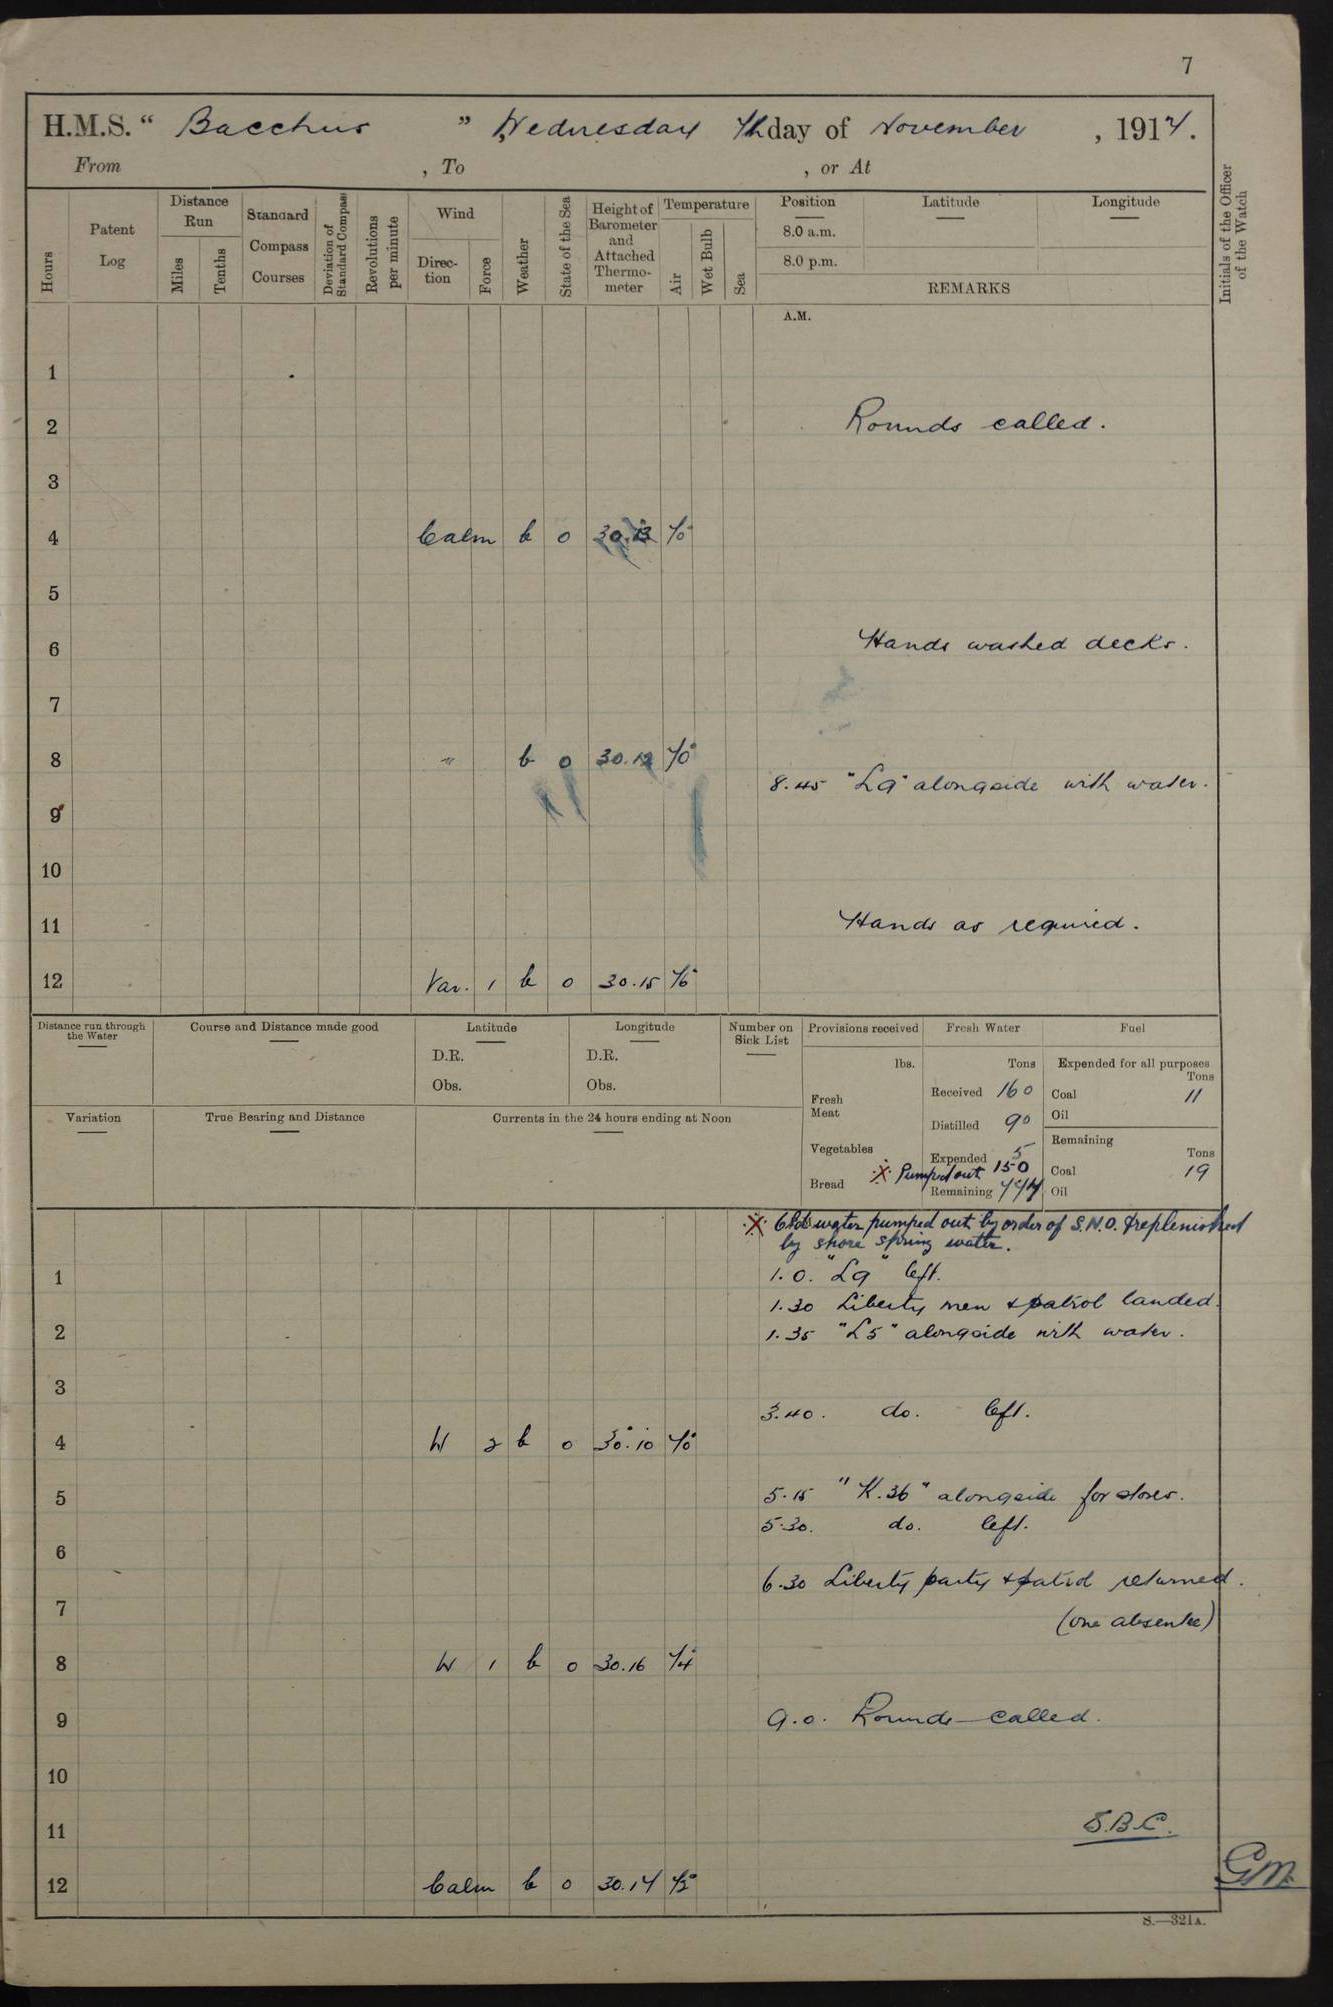 7
H.M.S. “ Bacchus ” Wednesday 7th day of November , 1917.
From , To , or At
Hours
Patent Log
Distance Run
Miles
Tenths
Standard Compass Courses
Deviation of Standard Compass
Revolutions per minute
Wind
Direc-tion
Force
Weather
State of the Sea
Height of Barometer and Attached Thermo-meter
Temperature
Air
Wet Bulb
Sea
Position
8.0 a.m.
8.0 p.m.
Latitude
Longitude
REMARKS
Initials of the Officer of the Watch
A.M.
1
2 Rounds called.
3
4 Calm b 0 30.13
5
6 Hands washed decks.
7
8 " b 0 30.12
8.45 "L9" alongside with water.
9
10
11 Hands as required.
12 Var. 1 b 0 30.15
Distance run through the Water
Course and Distance made good
Latitude
D.R.
Obs.
Longitude
D.R.
Obs.
Number on Sick List
Provisions received
lbs.
Fresh Meat
Vegetables
Bread
Fresh Water
Tons
Received 160
Distilled 90
Expended 5
X Pumped out 150
Remaining
Fuel
Expended for all purposes
Tons
Coal 11
Oil
Remaining
Tons
Coal 19
Oil
Variation
True Bearing and Distance
Currents in the 24 hours ending at Noon
X Old water pumped out by order of S.N.O. & replenished
by shore spring water.
1 1.0. "L9" left.
1.30 Liberty men & patrol landed.
2 1.35 "L5" alongside with water.
3
3.40. do. left.
4 W 2 b 0 30.10
5 5.15 "K.36" alongside for stores.
5.30. do. left.
6
6.30 Liberty party & patrol returned.
7 (one absentee)
8 W 1 b 0 30.16
9 9.0. Rounds called.
10
11 S.B.C.
12 Calm b 0 30.14
GM
S.—321A.